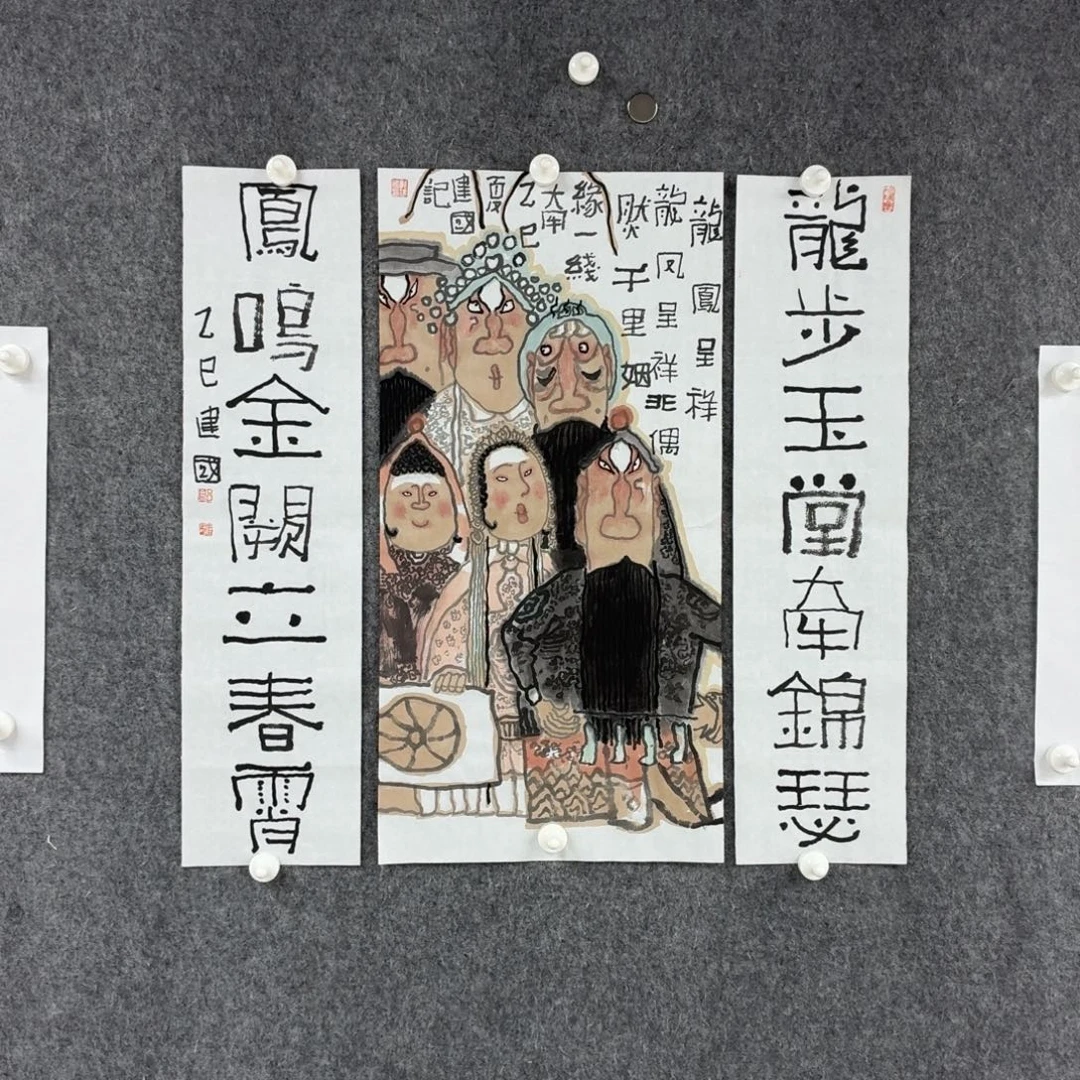 龍步玉堂牵錦瑟
龍鳳呈祥
龍凤呈祥非偶
然千里姻
緣一綫
牵
乙巳
夏
建國
記
鳳鳴金闕立春霄
乙巳建國